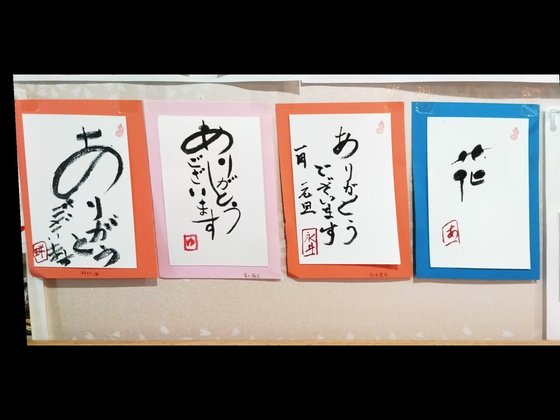 ありがとう
ございます
ありがとう
ございます
ゆ
ありがとう
ございます
一月 元旦
永井
花
あ